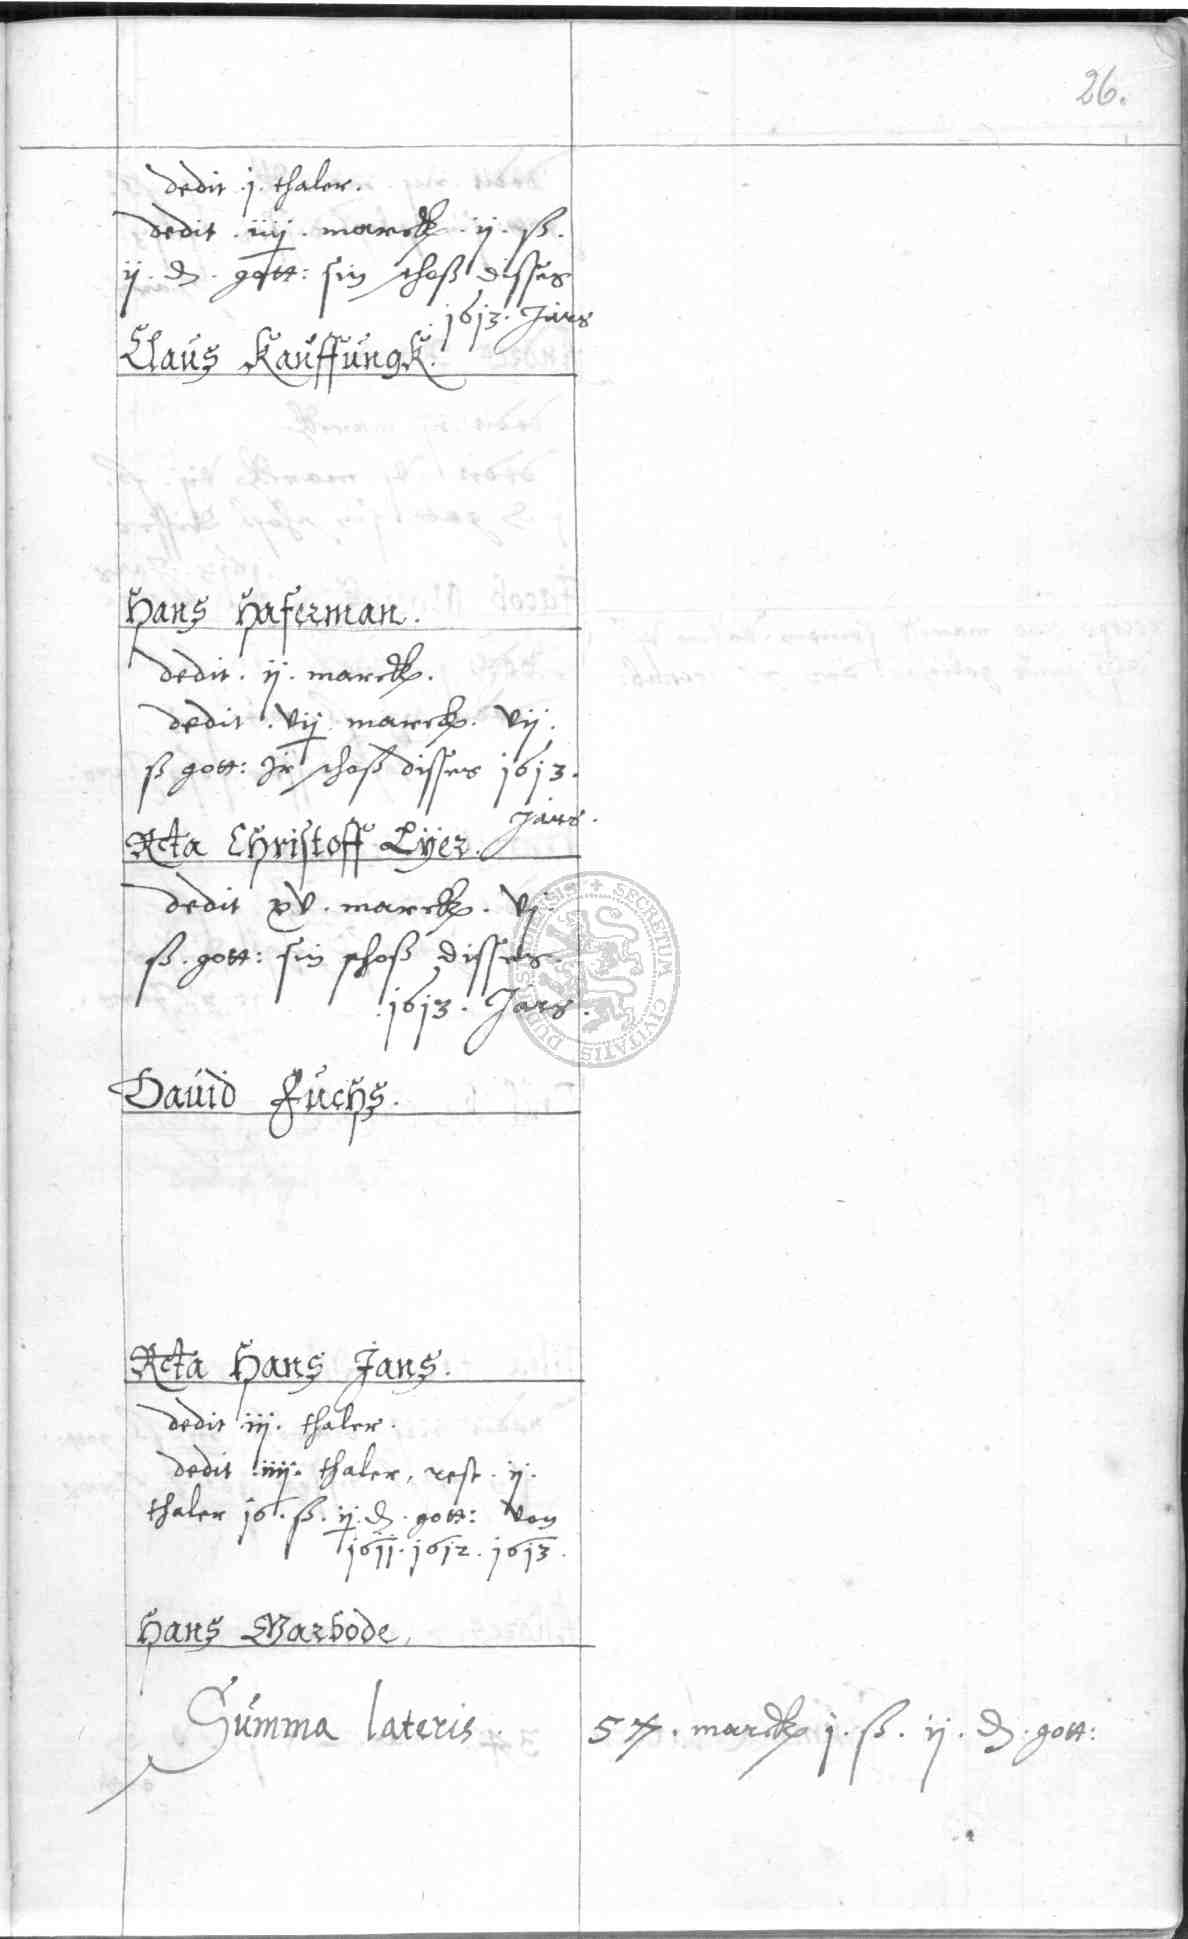 26.
dedit .j. thaler.
dedit .iiij. marck. ij. ß.
ij. ₰. gott: sin schoß disses
1613. Jars
Claus Kauffungk.
Hans Haferman.
dedit. ij. marck.
dedit. vij marck. vij.
ß gott: Jr schoß disses 1613.
Jars.
Rcta Christoff Lÿer.
dedit xv. marck. vj.
ß. gott: sin schoß disses
1613. Jars.
David Fuchs.
Rcta Hans Jans.
dedit .iij. thaler.
dedit .iiij. thaler, rest. ij.
thaler 16. ß. ij. ₰. gott: von
1611. 1612. 1613.
Hans Warbode,
Summa lateris. 57. marck j. ß. ij. ₰. gott:
SECRETUM CIVITATIS